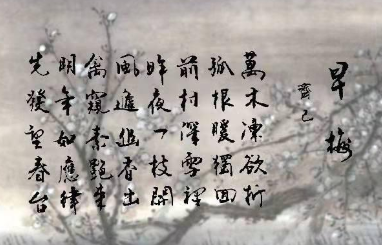 早梅
齊己
萬木凍欲折
孤根暖獨回
前村深雪裡
昨夜一枝開
風遞幽香出
禽窺素艷来
明年如應律
先發望春台